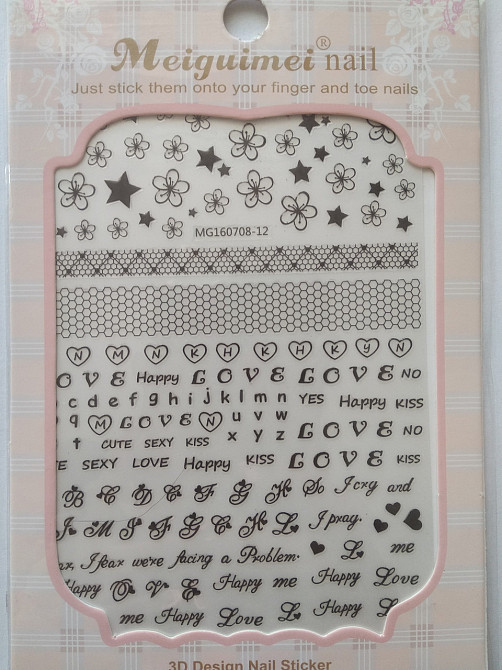 Meiguimei® nail
Just stick them onto your finger and toe nails
MG160708-12
N M N K H K H K Y N
O V E Happy L O V E L O V E NO
c d e f g h i j k l m n YES Happy KISS
q M L O V E N u v w
t CUTE SEXY KISS x y z L O V E NO
E SEXY LOVE Happy KISS L O V E KISS
B C D C F G H So I cry and
I M I F G C H L I pray.
I fear we're facing a Problem. L me
Happy O V E Happy me Happy Love
me Happy Love L Happy L
3D Design Nail Sticker